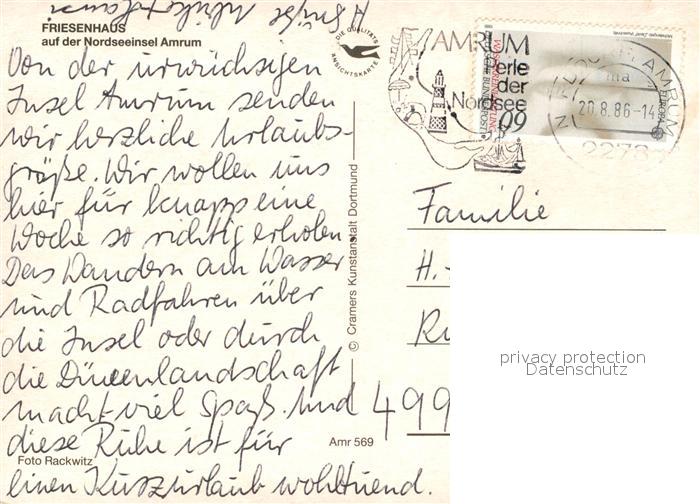 FRIESENHAUS
auf der Nordseeinsel Amrum
Von der urwüchsigen
Insel Amrum senden
wir herzliche Urlaubs-
grüße. Wir wollen uns
hier für knapp eine
Woche so richtig erholen.
Das Wandern am Wasser
und Radfahren über
die Insel oder durch
die Dünenlandschaft
macht viel Spaß. Und
diese Ruhe ist für
einen Kurzurlaub wohltuend.
Foto Rackwitz
Amr 569
© Cramers Kunstanstalt Dortmund
DIE QUALITÄTS
ANSICHTSKARTE
AMRUM
Perle
der
Nordsee
09
AMRUM
20.8.86-14
2278
Familie
H.-
499
privacy protection
Datenschutz